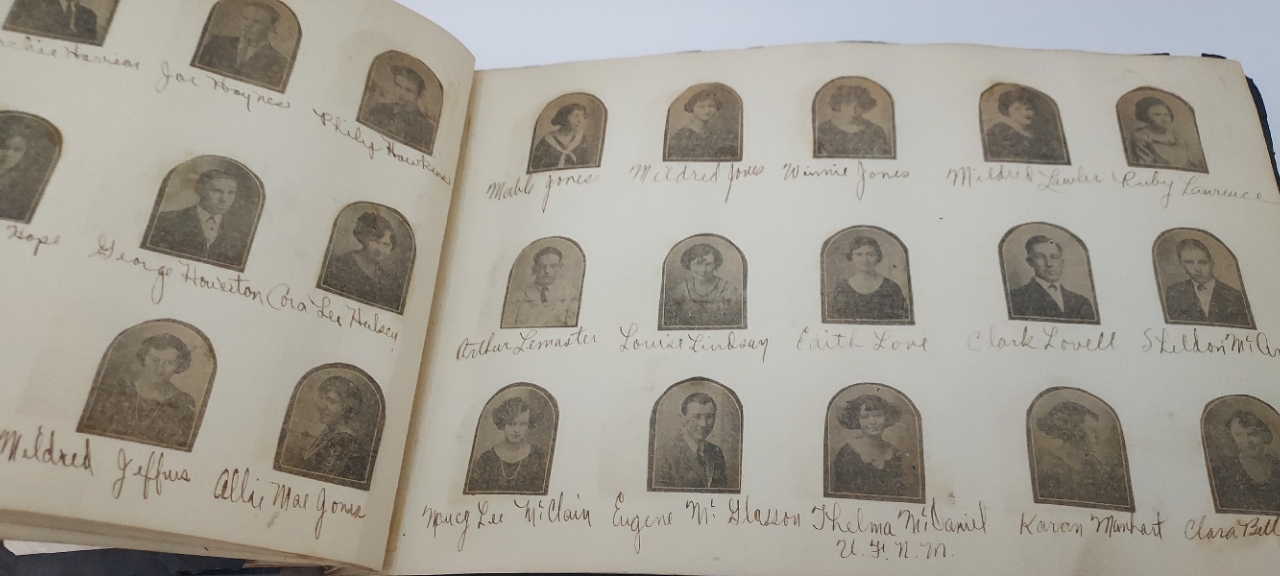 Harrison Joe Haynes
Philip Hawkins
Hope George Houston Cora Lee Hulsey
Mildred Jeffus Allie Mae Jones
Mable Jones Mildred Jones Winnie Jones Mildred Lawler Ruby Lawrence
Arthur Lemaster Louise Lindsay Edith Love Clark Lovell Sheldon
Nancy Lee McClain Eugene McGlasson Thelma McDaniel Karan Manhart Clara Bell
U.F.N.M.